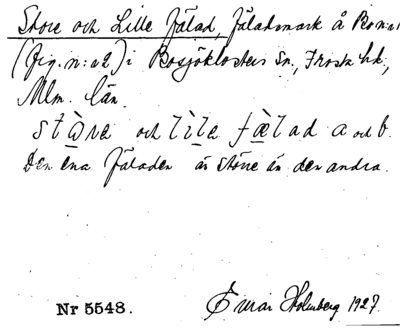 Store och Lille Fälad, Fäladsmark å Rom:a1
(Fig. n:a2) i Bosjöklosters Sn., Frosta hd,
Mlm. län.
stàre och lìle fælad a och b.
Den ena Fäladen är större än den andra.
Nr 5548. Einar Holmberg 1927.